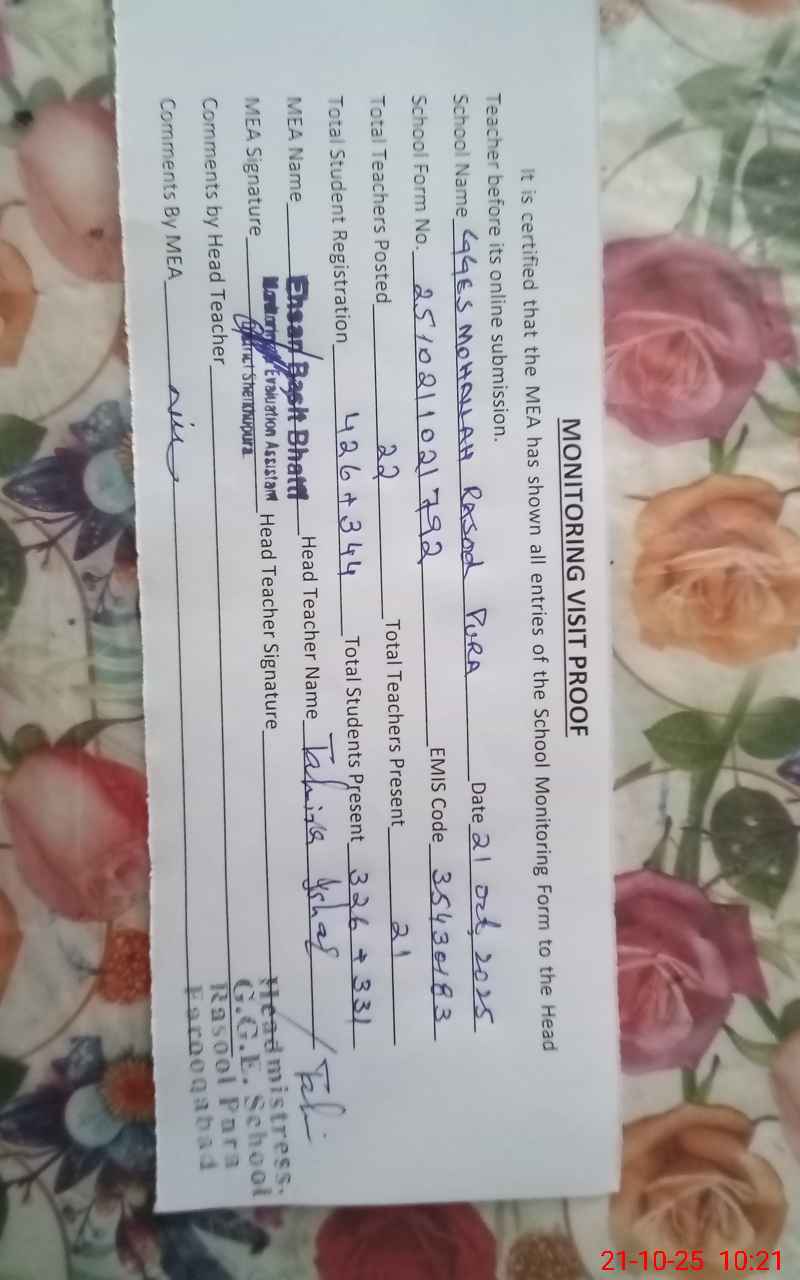 MONITORING VISIT PROOF
It is certified that the MEA has shown all entries of the School Monitoring Form to the Head
Teacher before its online submission.
School Name GGES MOHALLAH RASOOL PURA Date 21 Oct, 2025
School Form No. 2510211021792 EMIS Code 35430183
Total Teachers Posted 22 Total Teachers Present 21
Total Student Registration 426 + 344 Total Students Present 326 + 331
MEA Name Ehsan Bhatti Head Teacher Name Tahira
MEA Signature Monitoring Evaluation Assistant District Sheikhupura Head Teacher Signature
Comments by Head Teacher
Comments By MEA
Headmistress.
G.G.E. School
Rasool Pura
Farooqabad
21-10-25 10:21